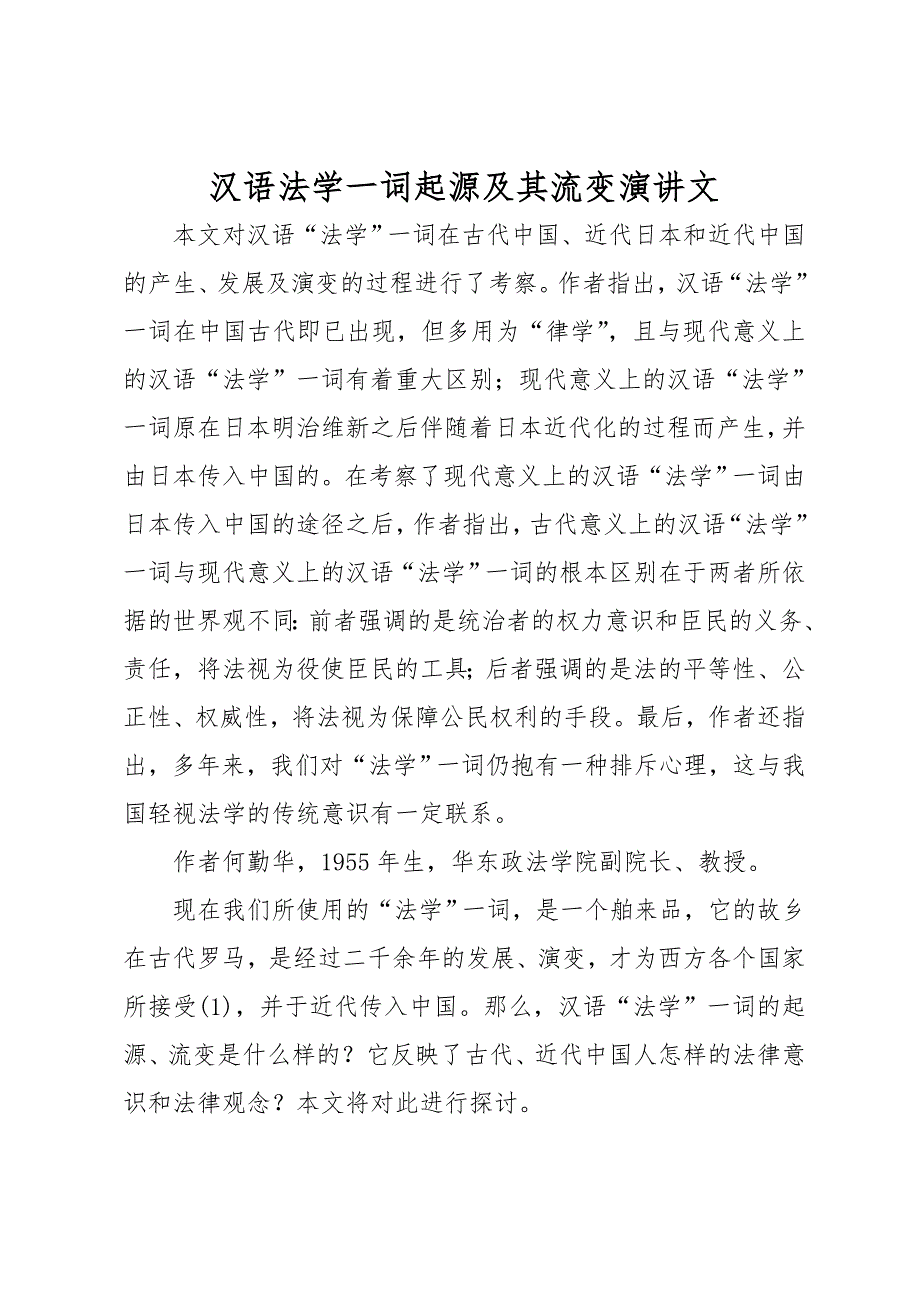 汉语法学一词起源及其流变演讲文
本文对汉语“法学”一词在古代中国、近代日本和近代中国
的产生、发展及演变的过程进行了考察。作者指出，汉语“法学”
一词在中国古代即已出现，但多用为“律学”，且与现代意义上
的汉语“法学”一词有着重大区别；现代意义上的汉语“法学”
一词原在日本明治维新之后伴随着日本近代化的过程而产生，并
由日本传入中国的。在考察了现代意义上的汉语“法学”一词由
日本传入中国的途径之后，作者指出，古代意义上的汉语“法学”
一词与现代意义上的汉语“法学”一词的根本区别在于两者所依
据的世界观不同：前者强调的是统治者的权力意识和臣民的义务、
责任，将法视为役使臣民的工具；后者强调的是法的平等性、公
正性、权威性，将法视为保障公民权利的手段。最后，作者还指
出，多年来，我们对“法学”一词仍抱有一种排斥心理，这与我
国轻视法学的传统意识有一定联系。
作者何勤华，1955 年生，华东政法学院副院长、教授。
现在我们所使用的“法学”一词，是一个舶来品，它的故乡
在古代罗马，是经过二千余年的发展、演变，才为西方各个国家
所接受(1)，并于近代传入中国。那么，汉语“法学”一词的起
源、流变是什么样的？它反映了古代、近代中国人怎样的法律意
识和法律观念？本文将对此进行探讨。